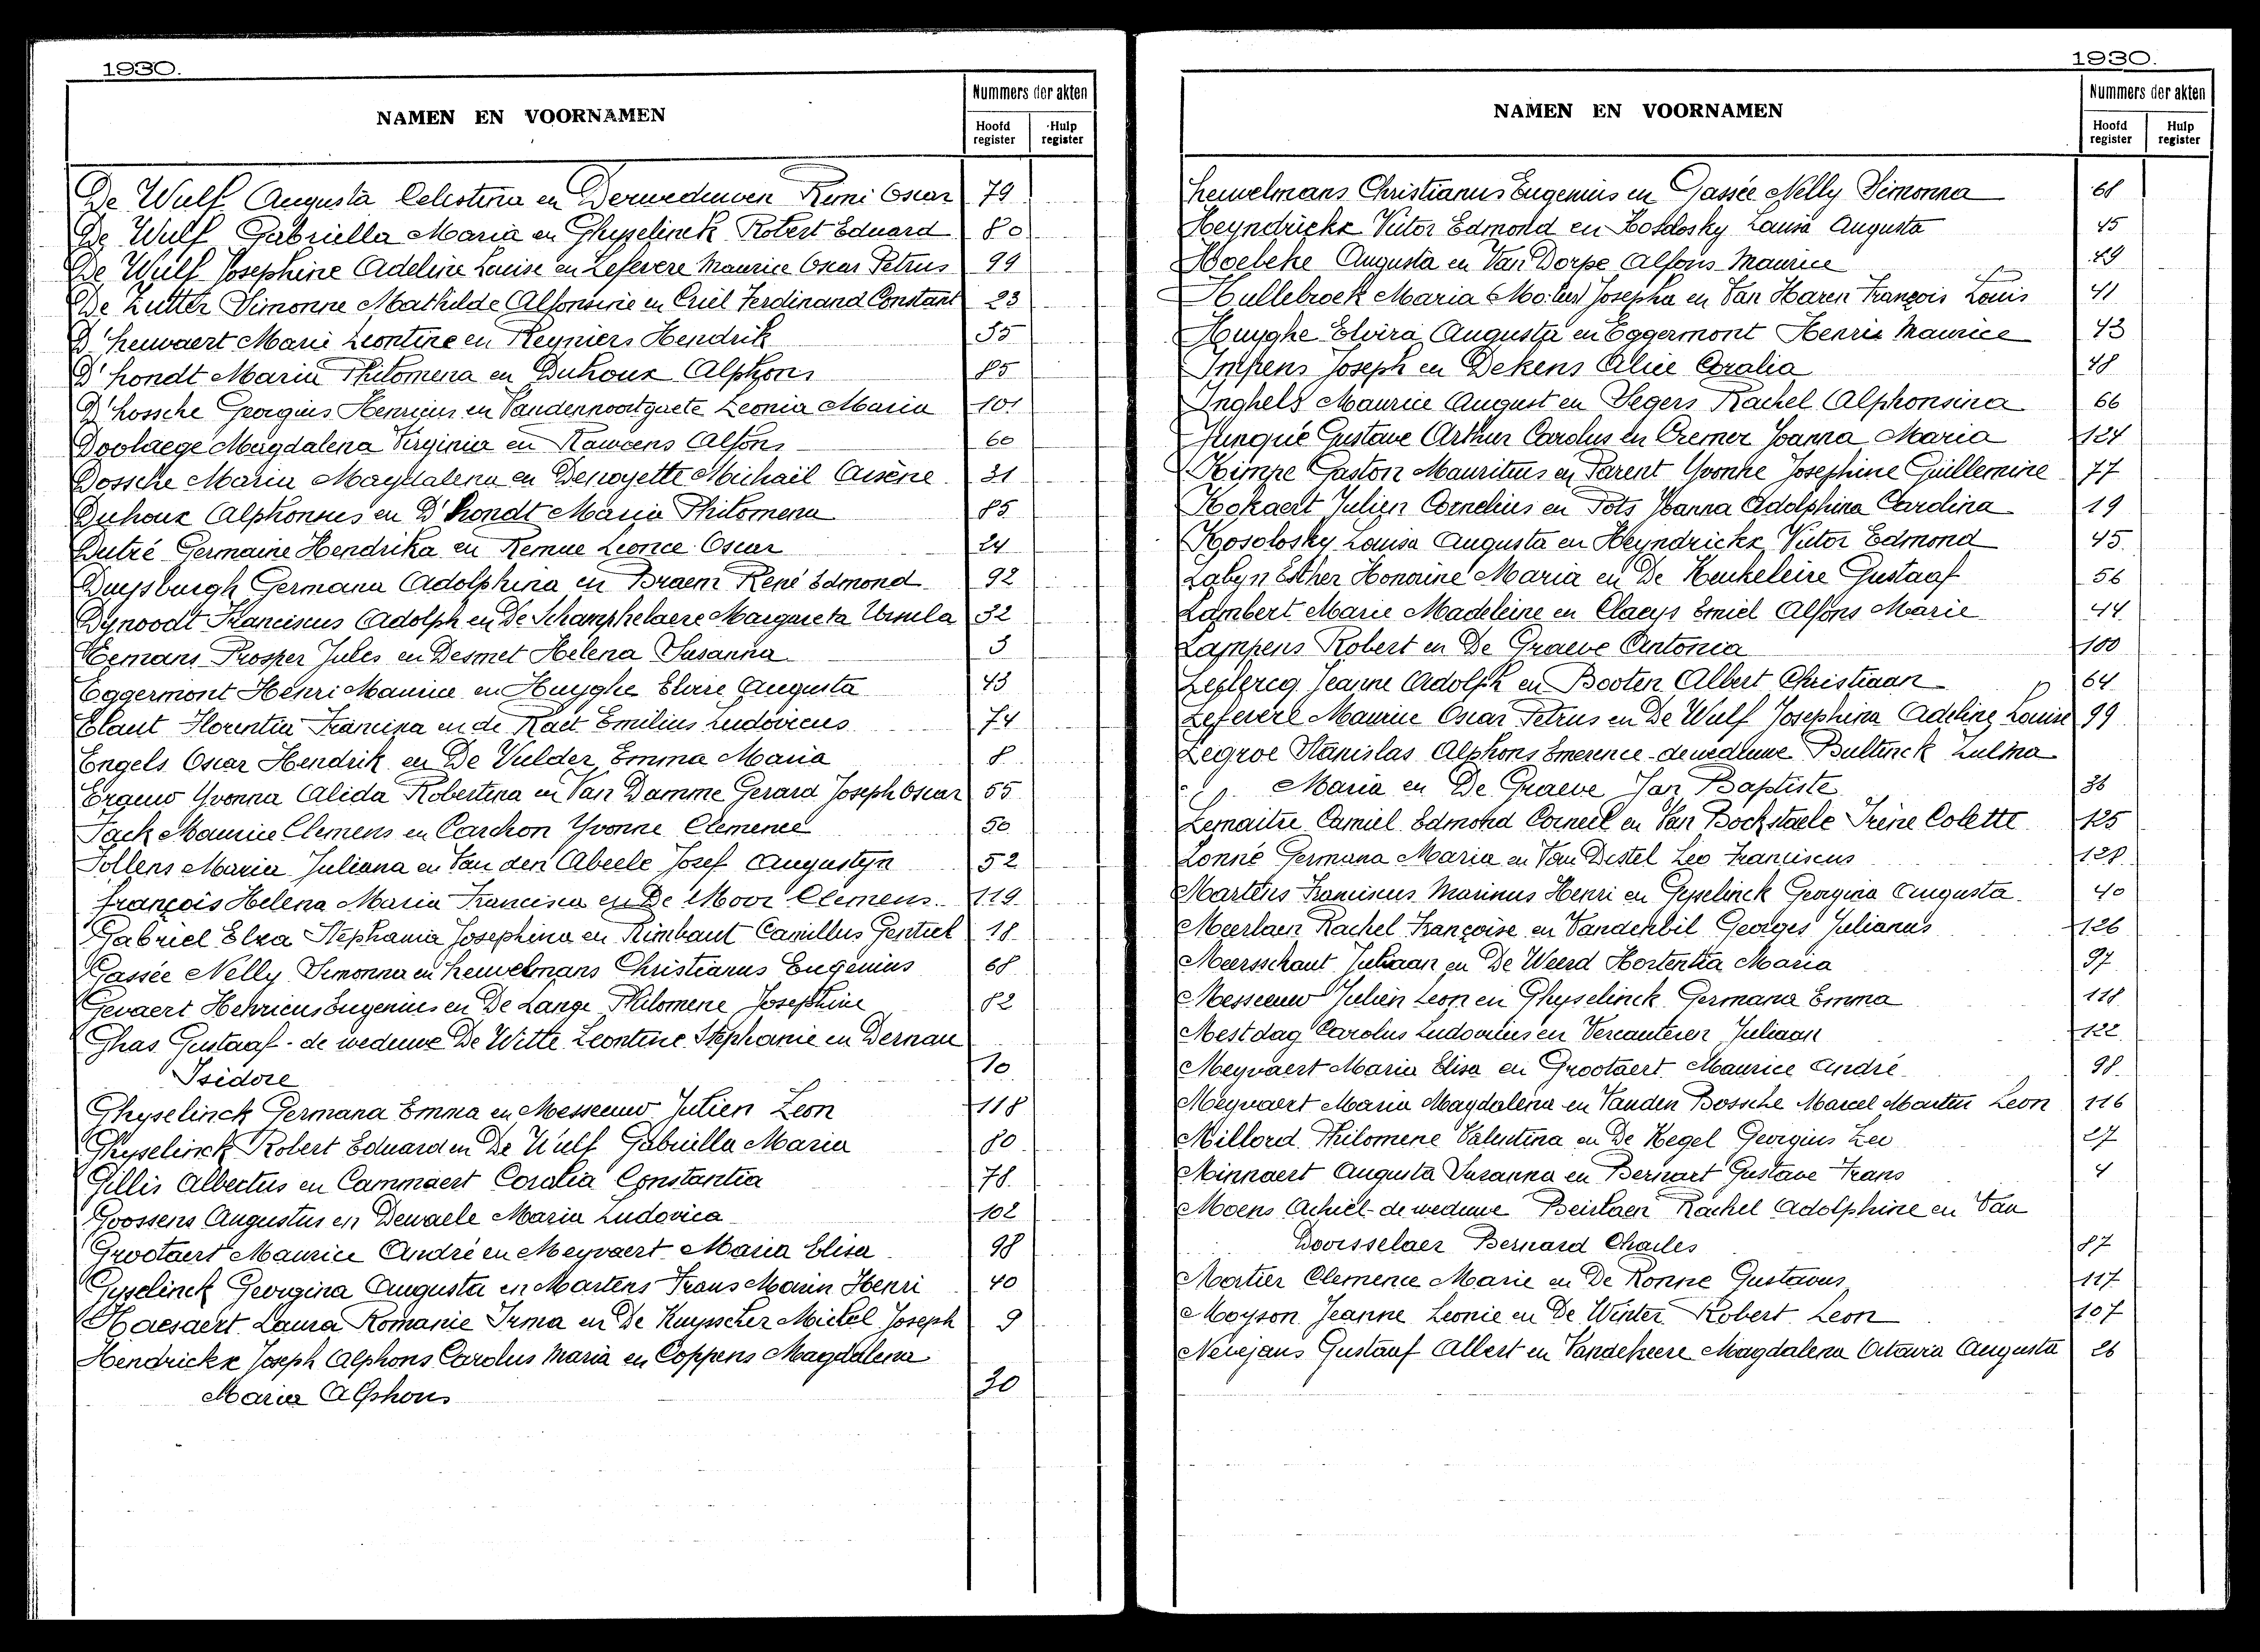 1930.
NAMEN EN VOORNAMEN
Nummers der akten
Hoofd register
Hulp register
De Wulf Augusta Celestina en Derweduwen Remi Oscar 79
De Wulf Gabriella Maria en Ghyselinck Robert Eduard 80
De Wulf Josephine Adeline Louise en Lefevere Maurice Oscar Petrus 99
De Zutter Simonne Mathilde Alfonsine en Criel Ferdinand Constant 23
D'heuvaert Marie Leontine en Reyniers Hendrik 35
D'hondt Maria Philomena en Duhoux Alphons 85
D'hossche Georgius Henricus en Vandennoortgaete Leonia Maria 101
Doolaege Magdalena Virginia en Rawoens Alfons 60
Dossche Maria Magdalena en Denoyette Michaël Arsène 31
Duhoux Alphonsus en D'hondt Maria Philomena 85
Dutré Germaine Hendrika en Remue Leonce Oscar 24
Duysburgh Germana Adolphina en Braem René Edmond 92
Dynoodt Franciscus Adolph en De Schamphelaere Margareta Ursula 32
Eemans Prosper Jules en Desmet Helena Susanna 3
Eggermont Henri Maurice en Huyghe Elvire Augusta 43
Elaut Florentia Francisca en de Raet Emilius Ludovicus 74
Engels Oscar Hendrik en De Vulder Emma Maria 8
Ergauw Yvonna Alida Robertina en Van Damme Gerard Joseph Oscar 55
Fack Maurice Clemens en Carchon Yvonne Clemence 50
Follens Maria Juliana en Van den Abeele Josef Augustyn 52
François Helena Maria Francisca en De Moor Clemens. 119
Gabriel Elza Stephania Josephina en Rimbaut Camillus Gentiel 18
Gassée Nelly Simonna en Heuvelmans Christianus Eugenius 68
Gevaert Henricus Eugenius en De Lange Philomene Josephine 82
Ghas Gustaaf - de weduwe De Witte Leontine Stephanie en Dernau
Isidore 10
Ghyselinck Germana Emma en Messeeuw Julien Leon 118
Ghyselinck Robert Eduard en De Wulf Gabriella Maria 80
Gillis Albertus en Cammaert Coralia Constantia 78
Goossens Augustus en Dewaele Maria Ludovica 102
Grootaert Maurice André en Meyvaert Maria Elisa 98
Gyselinck Georgina Augusta en Martens Frans Marin Henri 40
Haesaert Laura Romanie Irma en De Kuysscher Michel Joseph 9
Hendrickx Joseph Alphons Carolus Maria en Coppens Magdalena
Maria Alphons 30
1930.
NAMEN EN VOORNAMEN
Nummers der akten
Hoofd register
Hulp register
Heuvelmans Christianus Eugenius en Gassée Nelly Simonna 68
Heyndrickx Victor Edmond en Kosolosky Louisa Augusta 45
Hoebeke Augusta en Van Dorpe Alfons Maurice 29
Hullebroek Maria Josepha en Van Haren François Louis 41
Huyghe Elvira Augusta en Eggermont Henri Maurice 43
Impens Joseph en Dekens Alice Coralia 48
Inghels Maurice August en Segers Rachel Alphonsina 66
Junqué Gustave Arthur Carolus en Cremer Joanna Maria 124
Kimpe Gaston Mauritius en Parent Yvonne Josephine Guillemine 77
Kokaert Julien Cornelius en Pots Joanna Adolphina Carolina 19
Kosolosky Louisa Augusta en Heyndrickx Victor Edmond 45
Labyn Esther Honorine Maria en De Keukeleire Gustaaf 56
Lambert Marie Madeleine en Claeys Emiel Alfons Marie 44
Lampens Robert en De Graeve Antonia 100
Leclercq Jeanne Adolph en Booten Albert Christiaan 64
Lefevere Maurice Oscar Petrus en De Wulf Josephina Adeline Louise 99
Legroe Stanislas Alphons Emerence - de weduwe Bultinck Zulma
Maria en De Graeve Jan Baptiste 36
Lemaitre Camiel Edmond Corneel en Van Bockstaele Irène Colette 125
Lonné Germana Maria en Van Distel Leo Franciscus 128
Martens Franciscus Marinus Henri en Gyselinck Georgina Augusta 40
Meerlaen Rachel Françoise en Vanderbil Georges Julianus 126
Meersschaut Juliaan en De Weerd Hortentia Maria 97
Messeeuw Julien Leon en Ghyselinck Germana Emma 118
Mestdag Carolus Ludovicus en Vercauteren Juliaan 122
Meyvaert Maria Elisa en Grootaert Maurice André 98
Meyvaert Maria Magdalena en Vanden Bossche Marcel Martin Leon 116
Millord Philomene Valentina en De Kegel Georgius Leo 27
Minnaert Augusta Susanna en Bernart Gustave Frans 4
Moens Achiel - de weduwe Beirlaen Rachel Adolphine en Van
Doorsselaer Bernard Charles 87
Mortier Clemence Marie en De Ronne Gustavus 117
Moyson Jeanne Leonie en De Winter Robert Leon 107
Nevejans Gustaaf Albert en Vandeheere Magdalena Octavia Augusta 26